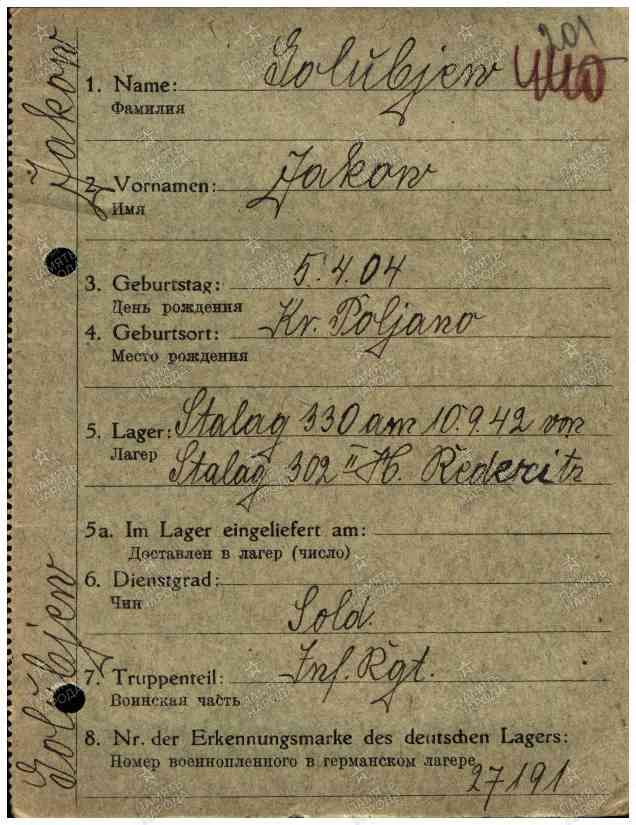 201
1. Name: Golubjew
Фамилия
2. Vornamen: Jakow
Имя
3. Geburtstag: 5.4.04
День рождения
4. Geburtsort: Kr. Poljano
Место рождения
5. Lager: Stalag 330 am 10.9.42 von
Лагер Stalag 302 II H. Rederitz
5a. Im Lager eingeliefert am:
Доставлен в лагер (число)
6. Dienstgrad:
Чин Sold.
7. Truppenteil: Inf. Rgt.
Воинская часть
8. Nr. der Erkennungsmarke des deutschen Lagers:
Номер военнопленного в германском лагере 27191
Golubjew Jakow
ПАМЯТЬ НАРОДА